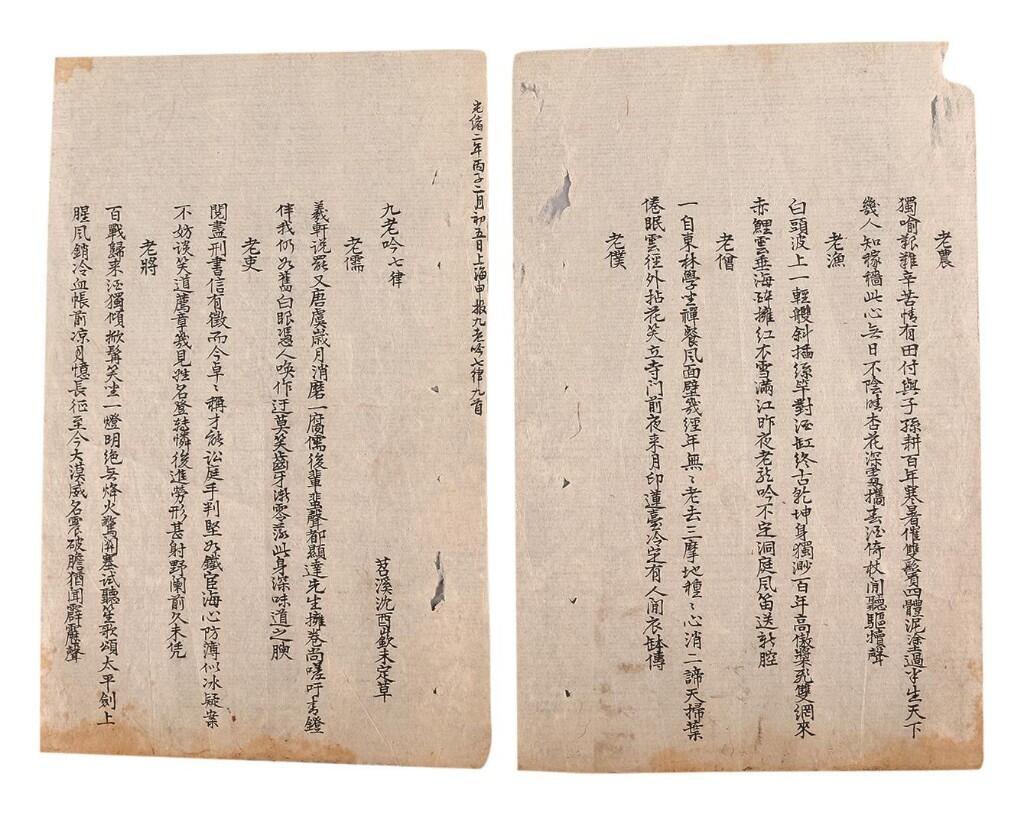 光緒二年丙子二月初五日上海申報九老吟七律九首
九老吟七律
苕溪沈酉嶔未定草
老儒
羲軒説罷又唐虞歲月消磨一腐儒後輩蜚聲都顯達先生擁卷尚嗟吁青鐙
伴我仍如舊白眼憑人喚作迂莫笑齒牙漸零落此身深味道之腴
老吏
閱盡刑書信有徵而今卓〻稱才能訟庭手判堅如鐵宦海心防薄似冰疑案
不妨談笑道薦章幾見姓名登憐後進勞形甚射野闌前久未凭
老將
百戰歸來酒獨傾掀髯笑坐一燈明絕無烽火驚關塞試聽笙歌頌太平劍上
腥風銷冷血帳前凉月憶長征至今大漠威名震破膽猶聞霹靂聲
老農
獨喻艱難辛苦情有田付與子孫耕百年寒暑催雙鬢四體泥塗過半生天下
幾人知稼穡此心無日不陰晴杏花深處攜壺酒倚杖閒聽驅犢聲
老漁
白頭波上一輕艘斜插絲竿對酒缸終古乾坤身獨渺百年高傲槳雙網來
赤鯉雲垂海碎擁紅衣雪滿江昨夜老龍吟不定洞庭風笛送新腔
老僧
一自東林學坐禪餐風面壁幾經年無〻老去三摩地種〻心消二諦天掃葉
倦眠雲徑外拈花笑立寺門前夜來月印蓮臺冷定有人聞衣缽傳
老僕